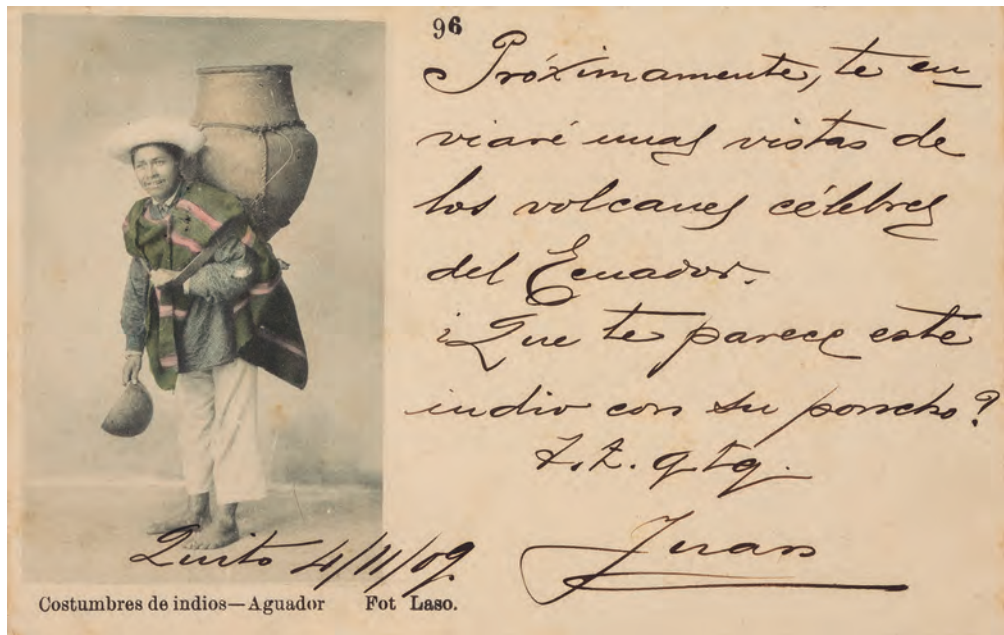 96
Próximamente, te en
viaré unas vistas de
los volcanes célebres
del Ecuador.
¿Que te parece este
indio con su poncho?
qtq.
Juan
Quito 4/11/09
Costumbres de indios—Aguador Fot Laso.